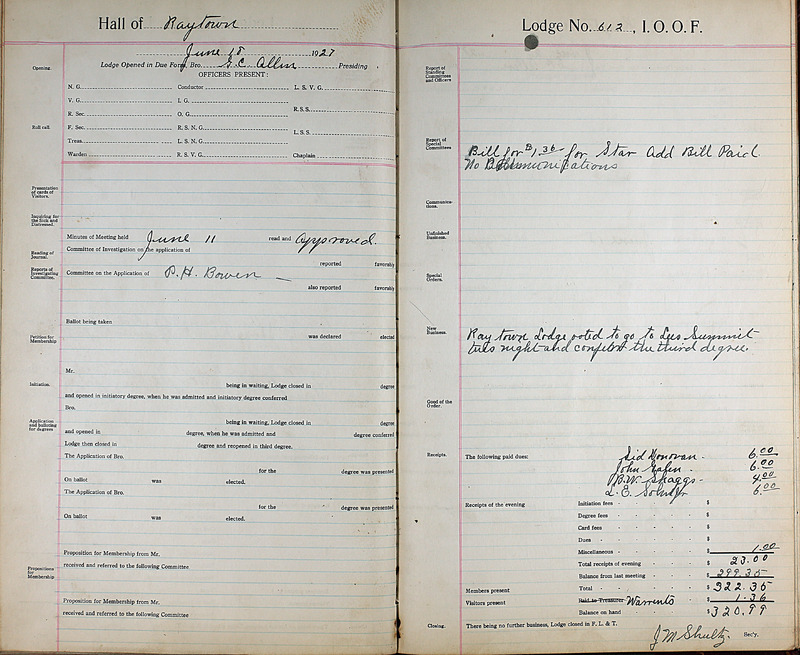 Hall of Raytown
June 18 1927
Opening. Lodge Opened in Due Form, Bro. G. C. Allen Presiding
OFFICERS PRESENT:
N. G. Conductor L. S. V. G.
V. G. I. G.
R. S. S.
R. Sec. O. G.
Roll call. F. Sec. R. S. N. G.
L. S. S.
Treas. L. S. N. G.
Warden R. S. V. G. Chaplain
Presentation of cards of Visitors.
Inquiring for the Sick and Distressed.
Minutes of Meeting held June 11 read and approved.
Reading of Journal. Committee of Investigation on the application of
reported favorably
Reports of Investigating Committee. Committee on the Application of P. H. Bowen
also reported favorably
Ballot being taken
Petition for Membership was declared elected
Mr.
Initiation. being in waiting, Lodge closed in degree
and opened in initiatory degree, when he was admitted and initiatory degree conferred
Bro.
Application and balloting for degrees being in waiting, Lodge closed in degree
and opened in degree, when he was admitted and degree conferred
Lodge then closed in degree and reopened in third degree.
The Application of Bro.
for the degree was presented
On ballot was elected.
The Application of Bro.
for the degree was presented
On ballot was elected.
Proposition for Membership from Mr.
Propositions for Membership received and referred to the following Committee
Proposition for Membership from Mr.
received and referred to the following Committee
Lodge No. 612, I. O. O. F.
Report of Standing Committees and Officers
Report of Special Committees
Bill for $1.36 for Star Add Bill Paid.
No Communications
Communications.
Unfinished Business.
Special Orders.
New Business.
Raytown Lodge voted to go to Lees Summit
tues night and confer the third degree.
Good of the Order.
Receipts. The following paid dues: Sid Donovan. 6.00
John 6.00
B. W. Skaggs. 4.00
L. E. 6.00
Receipts of the evening Initiation fees $
Degree fees $
Card fees $
Dues $
Miscellaneous $ 1.00
Total receipts of evening $ 23.00
Balance from last meeting $ 299.35
Members present Total $ 322.35
Visitors present Paid to Treasurer Warrents $ 1.36
Balance on hand $ 320.99
Closing. There being no further business, Lodge closed in F. L. & T.
J M Shultz. Sec'y.